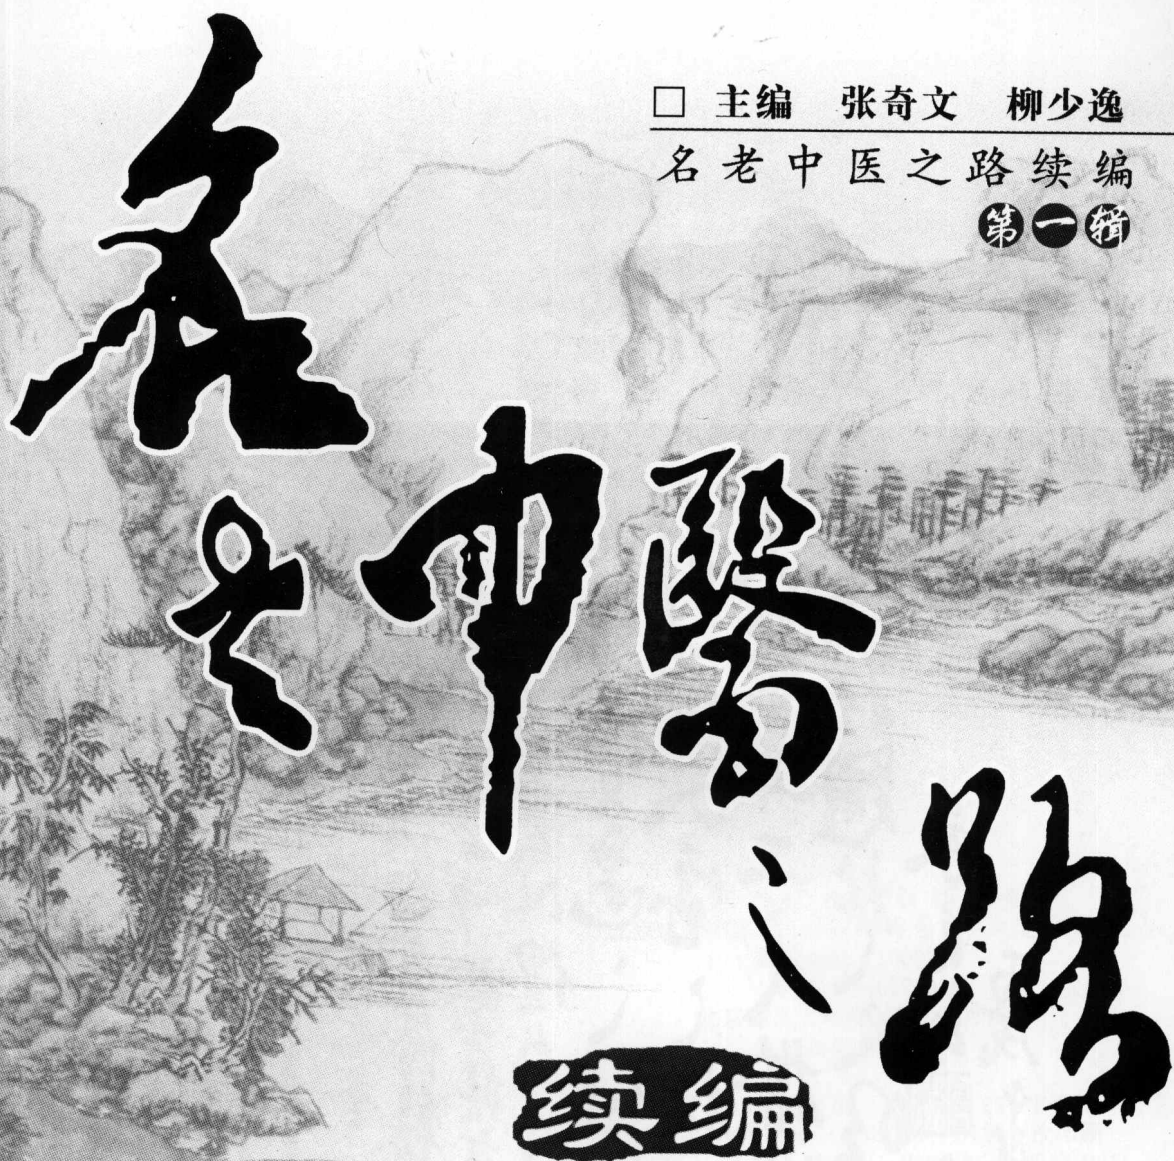 □ 主编 张奇文 柳少逸
名老中医之路续编
第一辑
名老中醫之路
续编